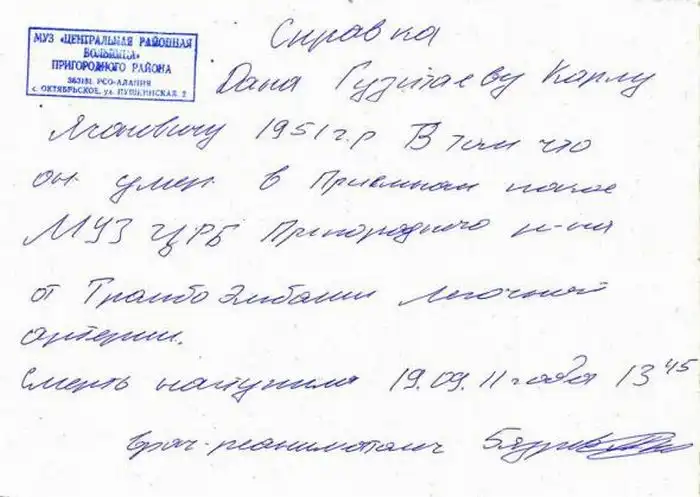 МУЗ «ЦЕНТРАЛЬНАЯ РАЙОННАЯ
БОЛЬНИЦА»
ПРИГОРОДНОГО РАЙОНА
363131, РСО-АЛАНИЯ
с. ОКТЯБРЬСКОЕ, ул. ПУШКИНСКАЯ, 2
Справка
Дана Гузитаеву Карлу
1951 г.р В том что
он умер в Приемном покое
МУЗ ЦРБ Пригородного р-на
от ТромбоЭмболии легочной
артерии.
Смерть наступила 19.09.11 года 13 45
Врач-реаниматолог